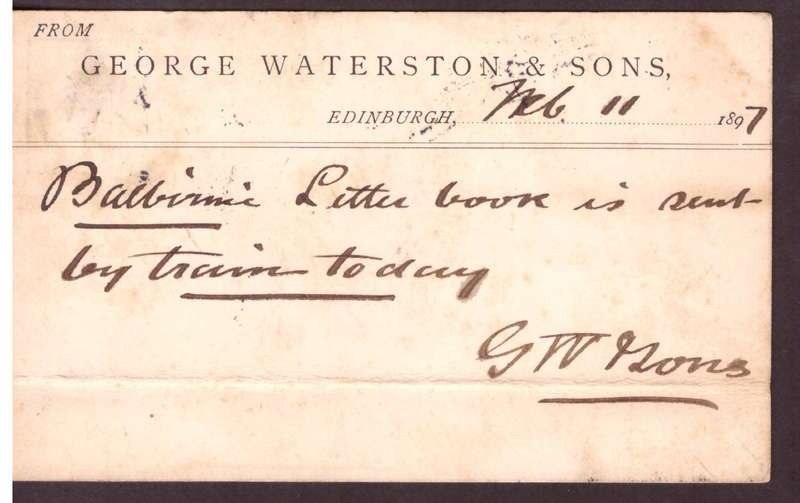 FROM
GEORGE WATERSTON & SONS,
EDINBURGH, Feb. 11 1897
Balbirnie Letter book is sent
by train today
G W & Sons